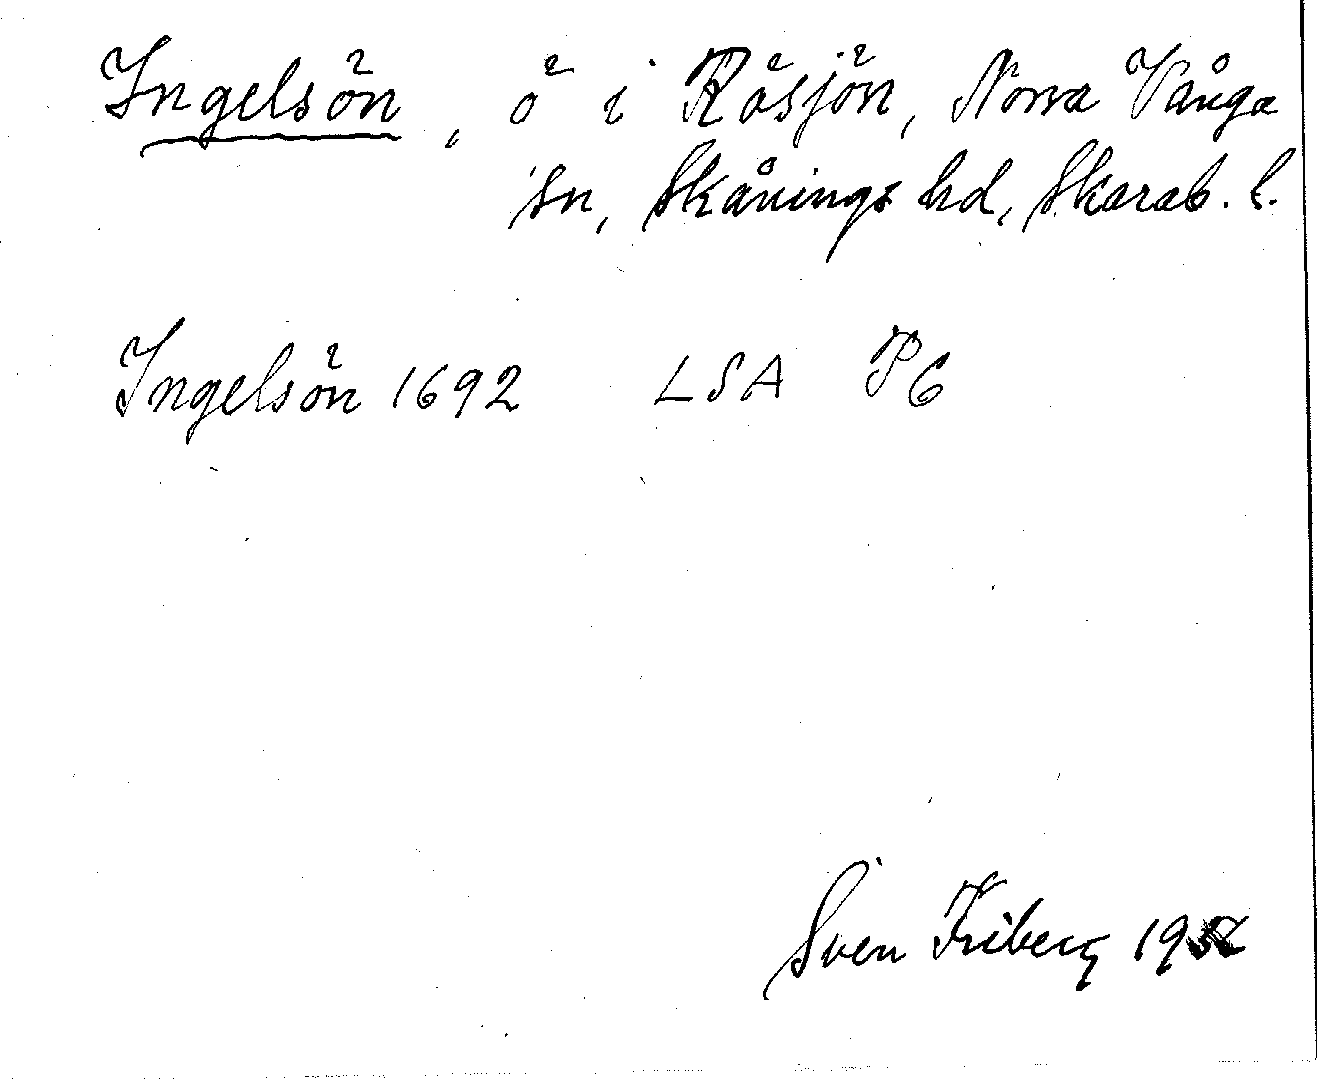 Ingelsön, ö i Rösjön, Norra Vånga
sn, Skånings hd, Skarab. l.
Ingelsön 1692 LSA P6
Sven Friberg